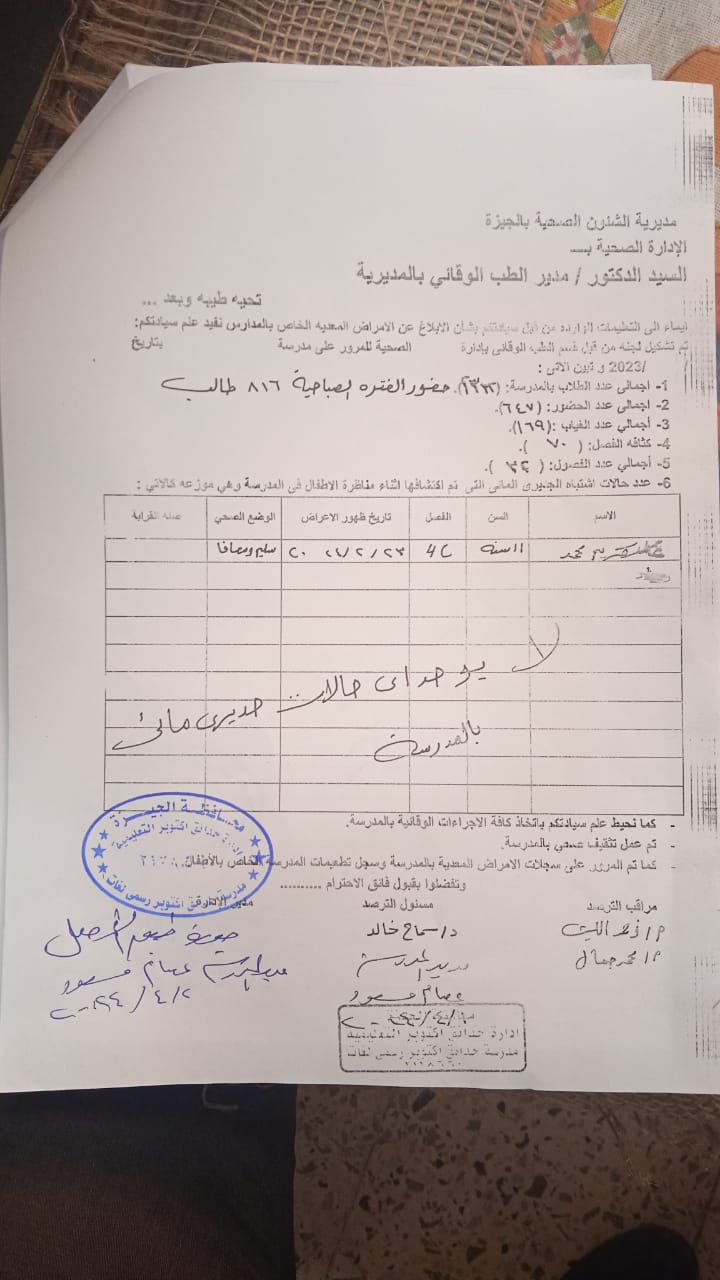 مديرية الشئون الصحية بالجيزة
الإدارة الصحية بـــ
السيد الدكتور / مدير الطب الوقائي بالمديرية
تحيه طيبه وبعد ...
ايماء الى التعليمات الوارده من قبل سيادتكم بشأن الابلاغ عن الامراض المعديه الخاص بالمدارس نفيد علم سيادتكم:
تم تشكيل لجنه من قبل قسم الطب الوقائى بإدارة الصحية للمرور على مدرسة بتاريخ
/2023 و تبين الاتى :
1- اجمالى عدد الطلاب بالمدرسة: (١٣٢٢). حضور الفتره الصباحية ٨١٦ طالب
2- اجمالى عدد الحضور: (٦٤٧).
3- أجمالي عدد الغياب :(١٦٩).
4- كثافه الفصل: ( ٧٠ ).
5- أجمالي عدد الفصول: ( ٣٤ ).
6- عدد حالات اشتباه الجديرى المائى التى تم اكتشافها اثناء مناظرة الاطفال فى المدرسة وهي موزعه كالاتي :
الاسم السن الفصل تاريخ ظهور الاعراض الوضع الصحي صله القرابة
كريم محمد ١١ سنه 4C ٢٠٢٤/٢/٢٣ سليم ومعافا
لا يوجد اى حالات جديرى مائى
بالمدرسة
- كما نحيط علم سيادتكم باتخاذ كافة الاجراءات الوقائية بالمدرسة.
- تم عمل تثقيف صحي بالمدرسة.
- كما تم المرور على سجلات الامراض المعدية بالمدرسة وسجل تطعيمات المدرسة الخاص بالأطفال.
وتفضلوا بقبول فائق الاحترام ..........
محافظة الجيزة
إدارة حدائق اكتوبر التعليمية
مدرسة حدائق اكتوبر رسمى لغات
مراقب الترصد مسئول الترصد مدير الادارة
د/ سماح خالد
م/ محمد جمال
مدير المدرسة
عصام مسعود
مدير المدرسة عصام مسعود
٢٠٢٤/٤/٢
ادارة حدائق اكتوبر التعليمية
مدرسة حدائق اكتوبر رسمى لغات